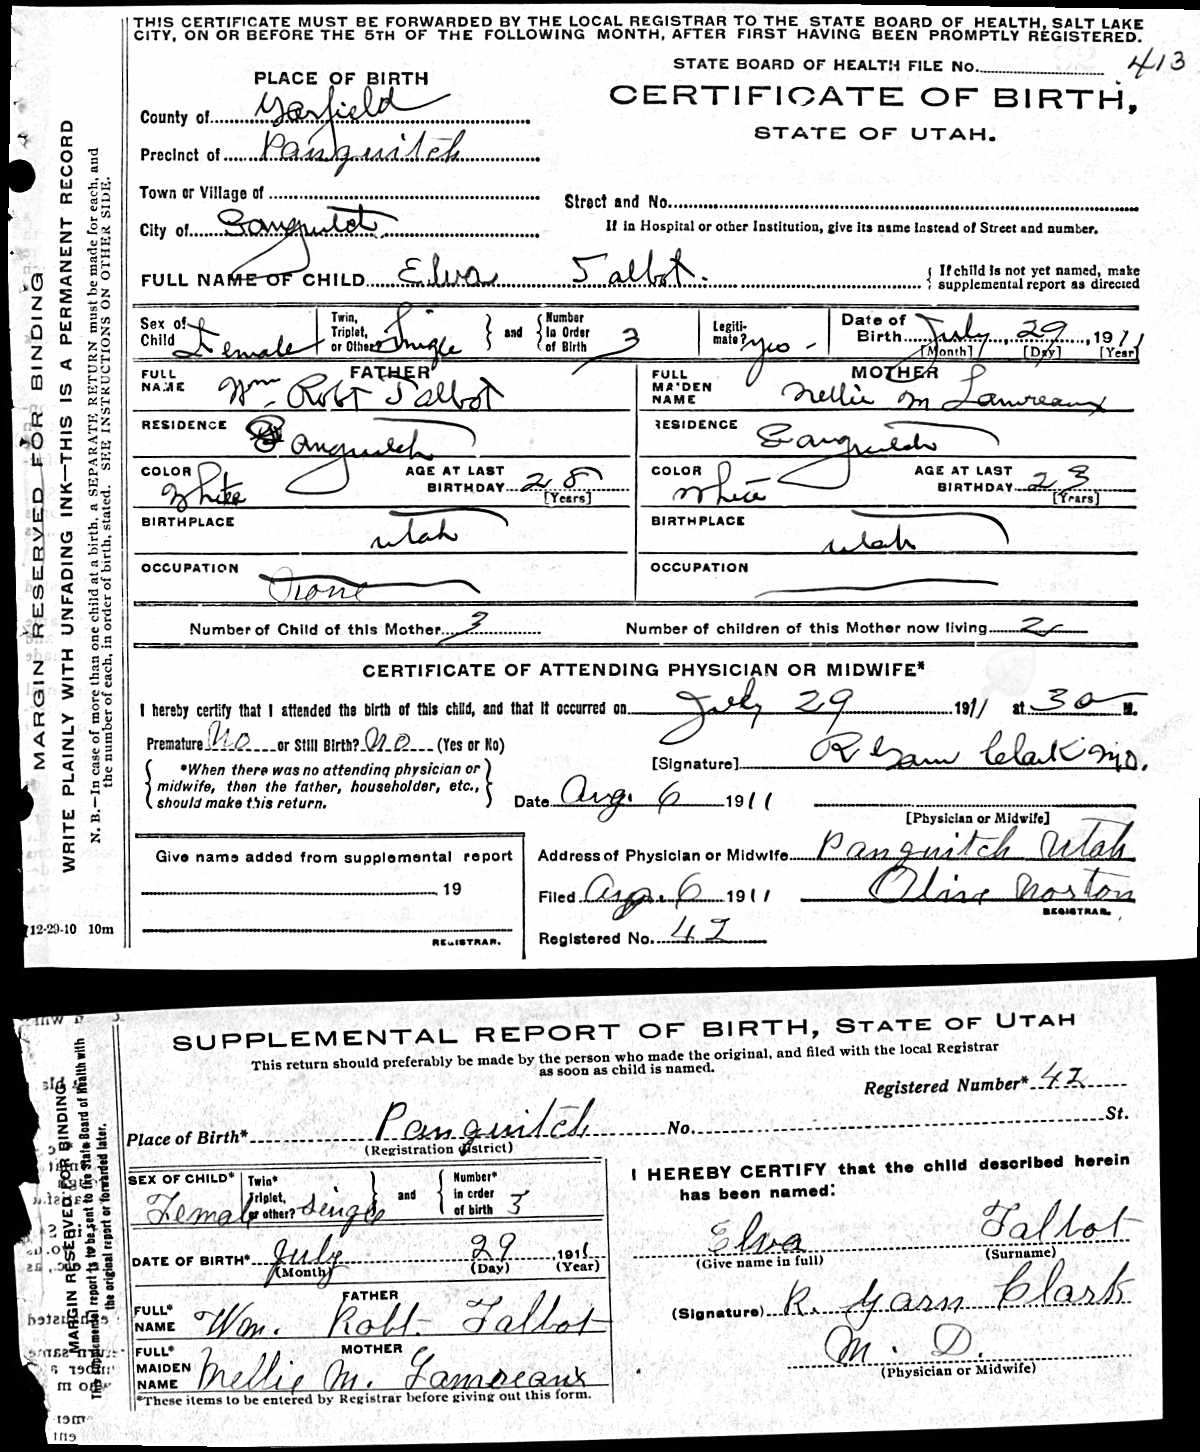 THIS CERTIFICATE MUST BE FORWARDED BY THE LOCAL REGISTRAR TO THE STATE BOARD OF HEALTH, SALT LAKE
CITY, ON OR BEFORE THE 5TH OF THE FOLLOWING MONTH, AFTER FIRST HAVING BEEN PROMPTLY REGISTERED.
STATE BOARD OF HEALTH FILE No. 413
PLACE OF BIRTH
CERTIFICATE OF BIRTH,
STATE OF UTAH.
County of Garfield
Precinct of Panguitch
Town or Village of
Street and No.
City of Panguitch
If in Hospital or other Institution, give its name instead of Street and number.
FULL NAME OF CHILD Elva Talbot.
{ If child is not yet named, make
supplemental report as directed
Sex of Child Female
Twin, Triplet, or Other? Single } and { Number in Order of Birth 3
Legitimate? yes -
Date of Birth July 29, 1911
[Month] [Day] [Year]
FATHER
FULL NAME Wm. Robt Talbot
MOTHER
FULL MAIDEN NAME Nellie M Lamreaux
RESIDENCE Panguitch
RESIDENCE Panguitch
COLOR White
AGE AT LAST BIRTHDAY 28
[Years]
COLOR White
AGE AT LAST BIRTHDAY 23
[Years]
BIRTHPLACE Utah
BIRTHPLACE Utah
OCCUPATION
OCCUPATION
Number of Child of this Mother 3
Number of children of this Mother now living 2
CERTIFICATE OF ATTENDING PHYSICIAN OR MIDWIFE*
I hereby certify that I attended the birth of this child, and that it occurred on July 29 1911 at 30 M.
Premature No or Still Birth? No (Yes or No)
[Signature] R Garn Clark M.D.
{ *When there was no attending physician or
midwife, then the father, householder, etc.,
should make this return. }
Date Aug. 6 1911
[Physician or Midwife]
Give name added from supplemental report
Address of Physician or Midwife Panguitch Utah
19
Filed Aug. 6 1911
Olive Norton
REGISTRAR.
REGISTRAR.
Registered No. 42
12-29-10 10m
MARGIN RESERVED FOR BINDING
WRITE PLAINLY WITH UNFADING INK—THIS IS A PERMANENT RECORD
N. B.—In case of more than one child at a birth, a SEPARATE RETURN must be made for each, and
the number of each, in order of birth, stated. SEE INSTRUCTIONS ON OTHER SIDE.
SUPPLEMENTAL REPORT OF BIRTH, STATE OF UTAH
This return should preferably be made by the person who made the original, and filed with the local Registrar
as soon as child is named.
Registered Number* 42
Place of Birth* Panguitch No. St.
(Registration district)
SEX OF CHILD* Female
Twin* Triplet, or other? Single } and { Number* in order of birth 3
I HEREBY CERTIFY that the child described herein
has been named:
Elva Talbot
(Give name in full) (Surname)
DATE OF BIRTH* July 29 1911
(Month) (Day) (Year)
FATHER
FULL* NAME Wm. Robt. Talbot
(Signature) R. Garn Clark
M. D.
(Physician or Midwife)
MOTHER
FULL* MAIDEN NAME Nellie M. Lamreaux
*These items to be entered by Registrar before giving out this form.
MARGIN RESERVED FOR BINDING
This supplemental report is to be sent to the State Board of Health with
the original report or forwarded later.